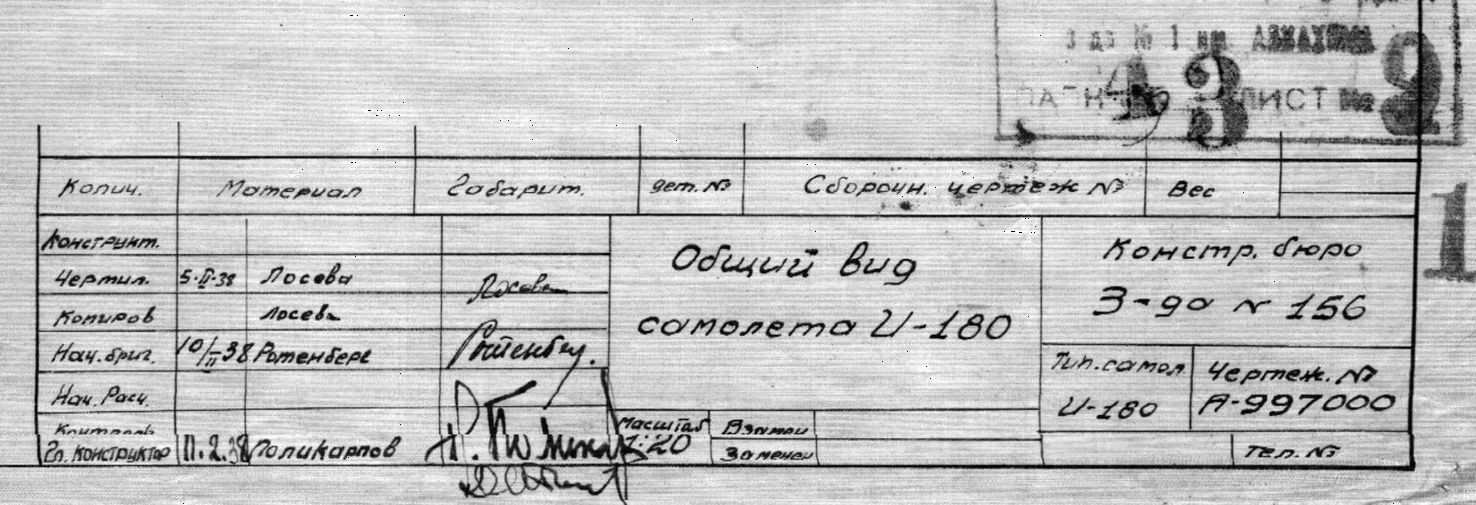 З-да № 1 им. АВИАХИМА
43 ЛИСТ № 2
1
Колич. Материал Габарит. дет. № Сборочн. чертеж № Вес
Конструкт.
Чертил. 5-II-38 Лосева Лосева
Копиров Лосева
Нач. бриг. 10/II-38 Ротенберг Ротенберг.
Нач. Расч.
Контроль
Гл. конструктор 11.2.38 Поликарпов
Общий вид
самолета И-180
Масштаб
1:20
Взамен
Заменен
Констр. бюро
З-да № 156
Тип. самол
И-180
Чертеж. №
А-997000
тел. №